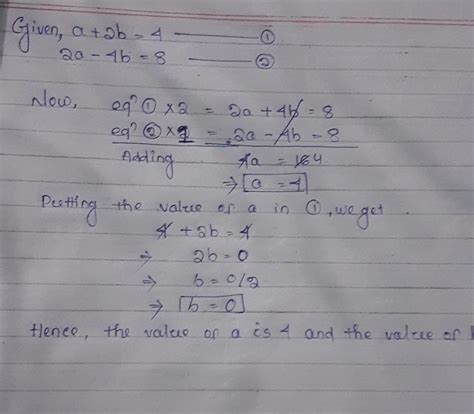 Given, a + 2b = 4 ——— ①
2a - 4b = 8 ——— ②
Now, eqⁿ ① × 2 = 2a + 4b = 8
eqⁿ ② × 1 = 2a - 4b = 8
Adding 4a = 16 4
⇒ a = 4
Putting the value of a in ①, we get.
4 + 2b = 4
⇒ 2b = 0
⇒ b = 0/2
⇒ b = 0
Hence, the value of a is 4 and the value of